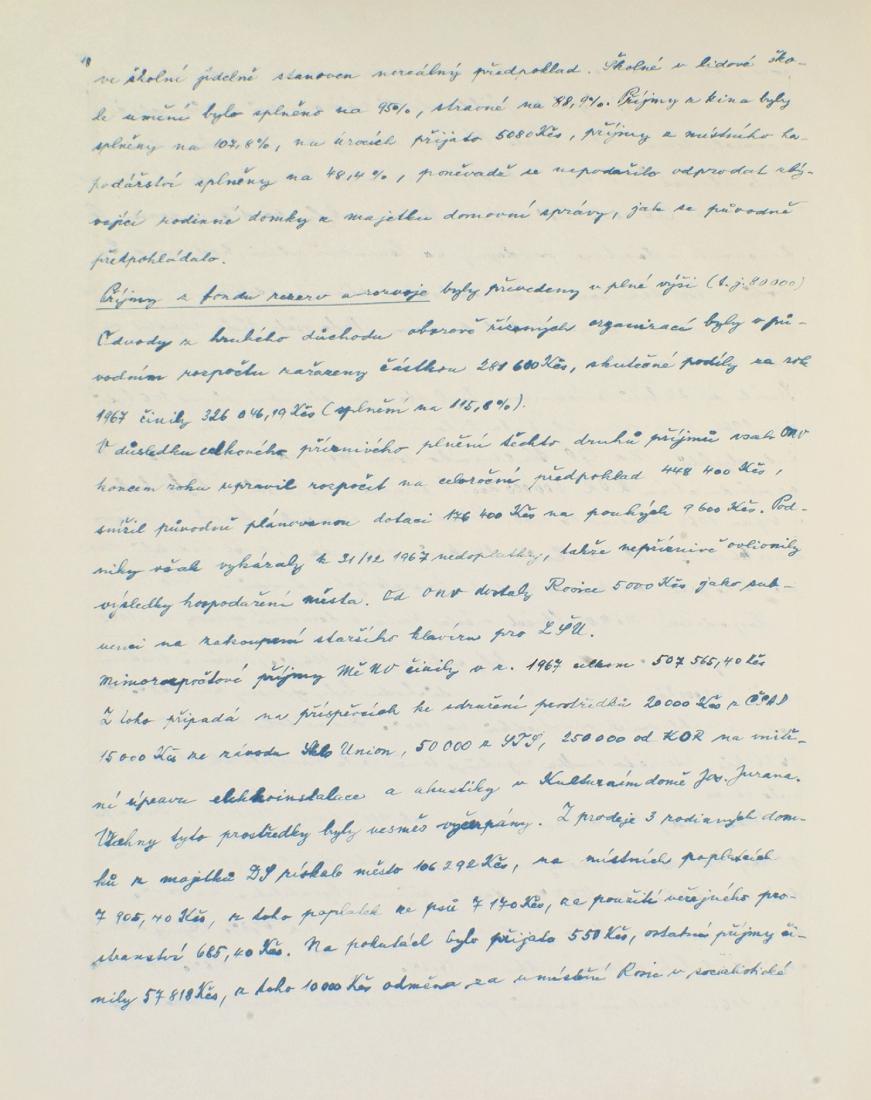 ve školní jídelně stanoven nereálný předpoklad. Školné v lidové ško-
le umění bylo splněno na 95%, stravné na 88,9%. Příjmy z kina byly
splněny na 107,8%, na úrocích přijato 5080 Kčs, příjmy z místního ho-
podářství splněny na 48,4%, poněvadž se nepodařilo odprodat zbý-
vající rodinné domky z majetku domovní správy, jak se původně
předpohládalo.
Příjmy z fondu rezerv a rozvoje byly převedeny v plné výši (t.j. 80 000)
Odvody z hrubého důchodu oborově řízených organizací byly v pů-
vodním rozpočtu zařazeny částkou 281 600 Kčs, skutečné podíly za rok
1967 činily 326 046,19 Kčs (splnění na 115,8%).
V důsledku celkového příznivého plnění těchto druhů příjmů však ONV
koncem roku upravil rozpočet na celoroční předpoklad 448 400 Kčs,
snížil původně plánovanou dotaci 176 400 Kčs na pouhých 9 600 Kčs. Pod-
niky však vykázaly k 31/12 1967 nedoplatky, takže nepříznivě ovlivnily
výsledky hospodaření města. Od ONV dostaly Rosice 5000 Kčs jako sub-
venci na zakoupení staršího klavíru pro LŠU.
Mimorozpočtové příjmy MěNV činily v r. 1967 celkem 507 565,40 Kčs
Z toho připadá na příspěvcích ke sdružení prostředků 20 000 Kčs z ČSAD
15 000 Kčs ze závodu Sklo Union, 50 000 z STS, 250 000 od KOR na vnitř-
ní úpravu elektroinstalace a akustiky v Kulturním domě Jos. Jurana.
Všechny tyto prostředky byly vesměs vyčerpány. Z prodeje 3 rodinných dom-
ků z majetku DS získalo město 106 292 Kčs, na místních poplatcích
7 905,40 Kčs, z toho poplatek ze psů 7 170 Kčs, za použití veřejného pro-
stranství 685,40 Kčs. Na pokutách bylo přijato 550 Kčs, ostatní příjmy či-
nily 57 818 Kčs, z toho 10 000 Kčs odměna za umístění Rosic v socialistické